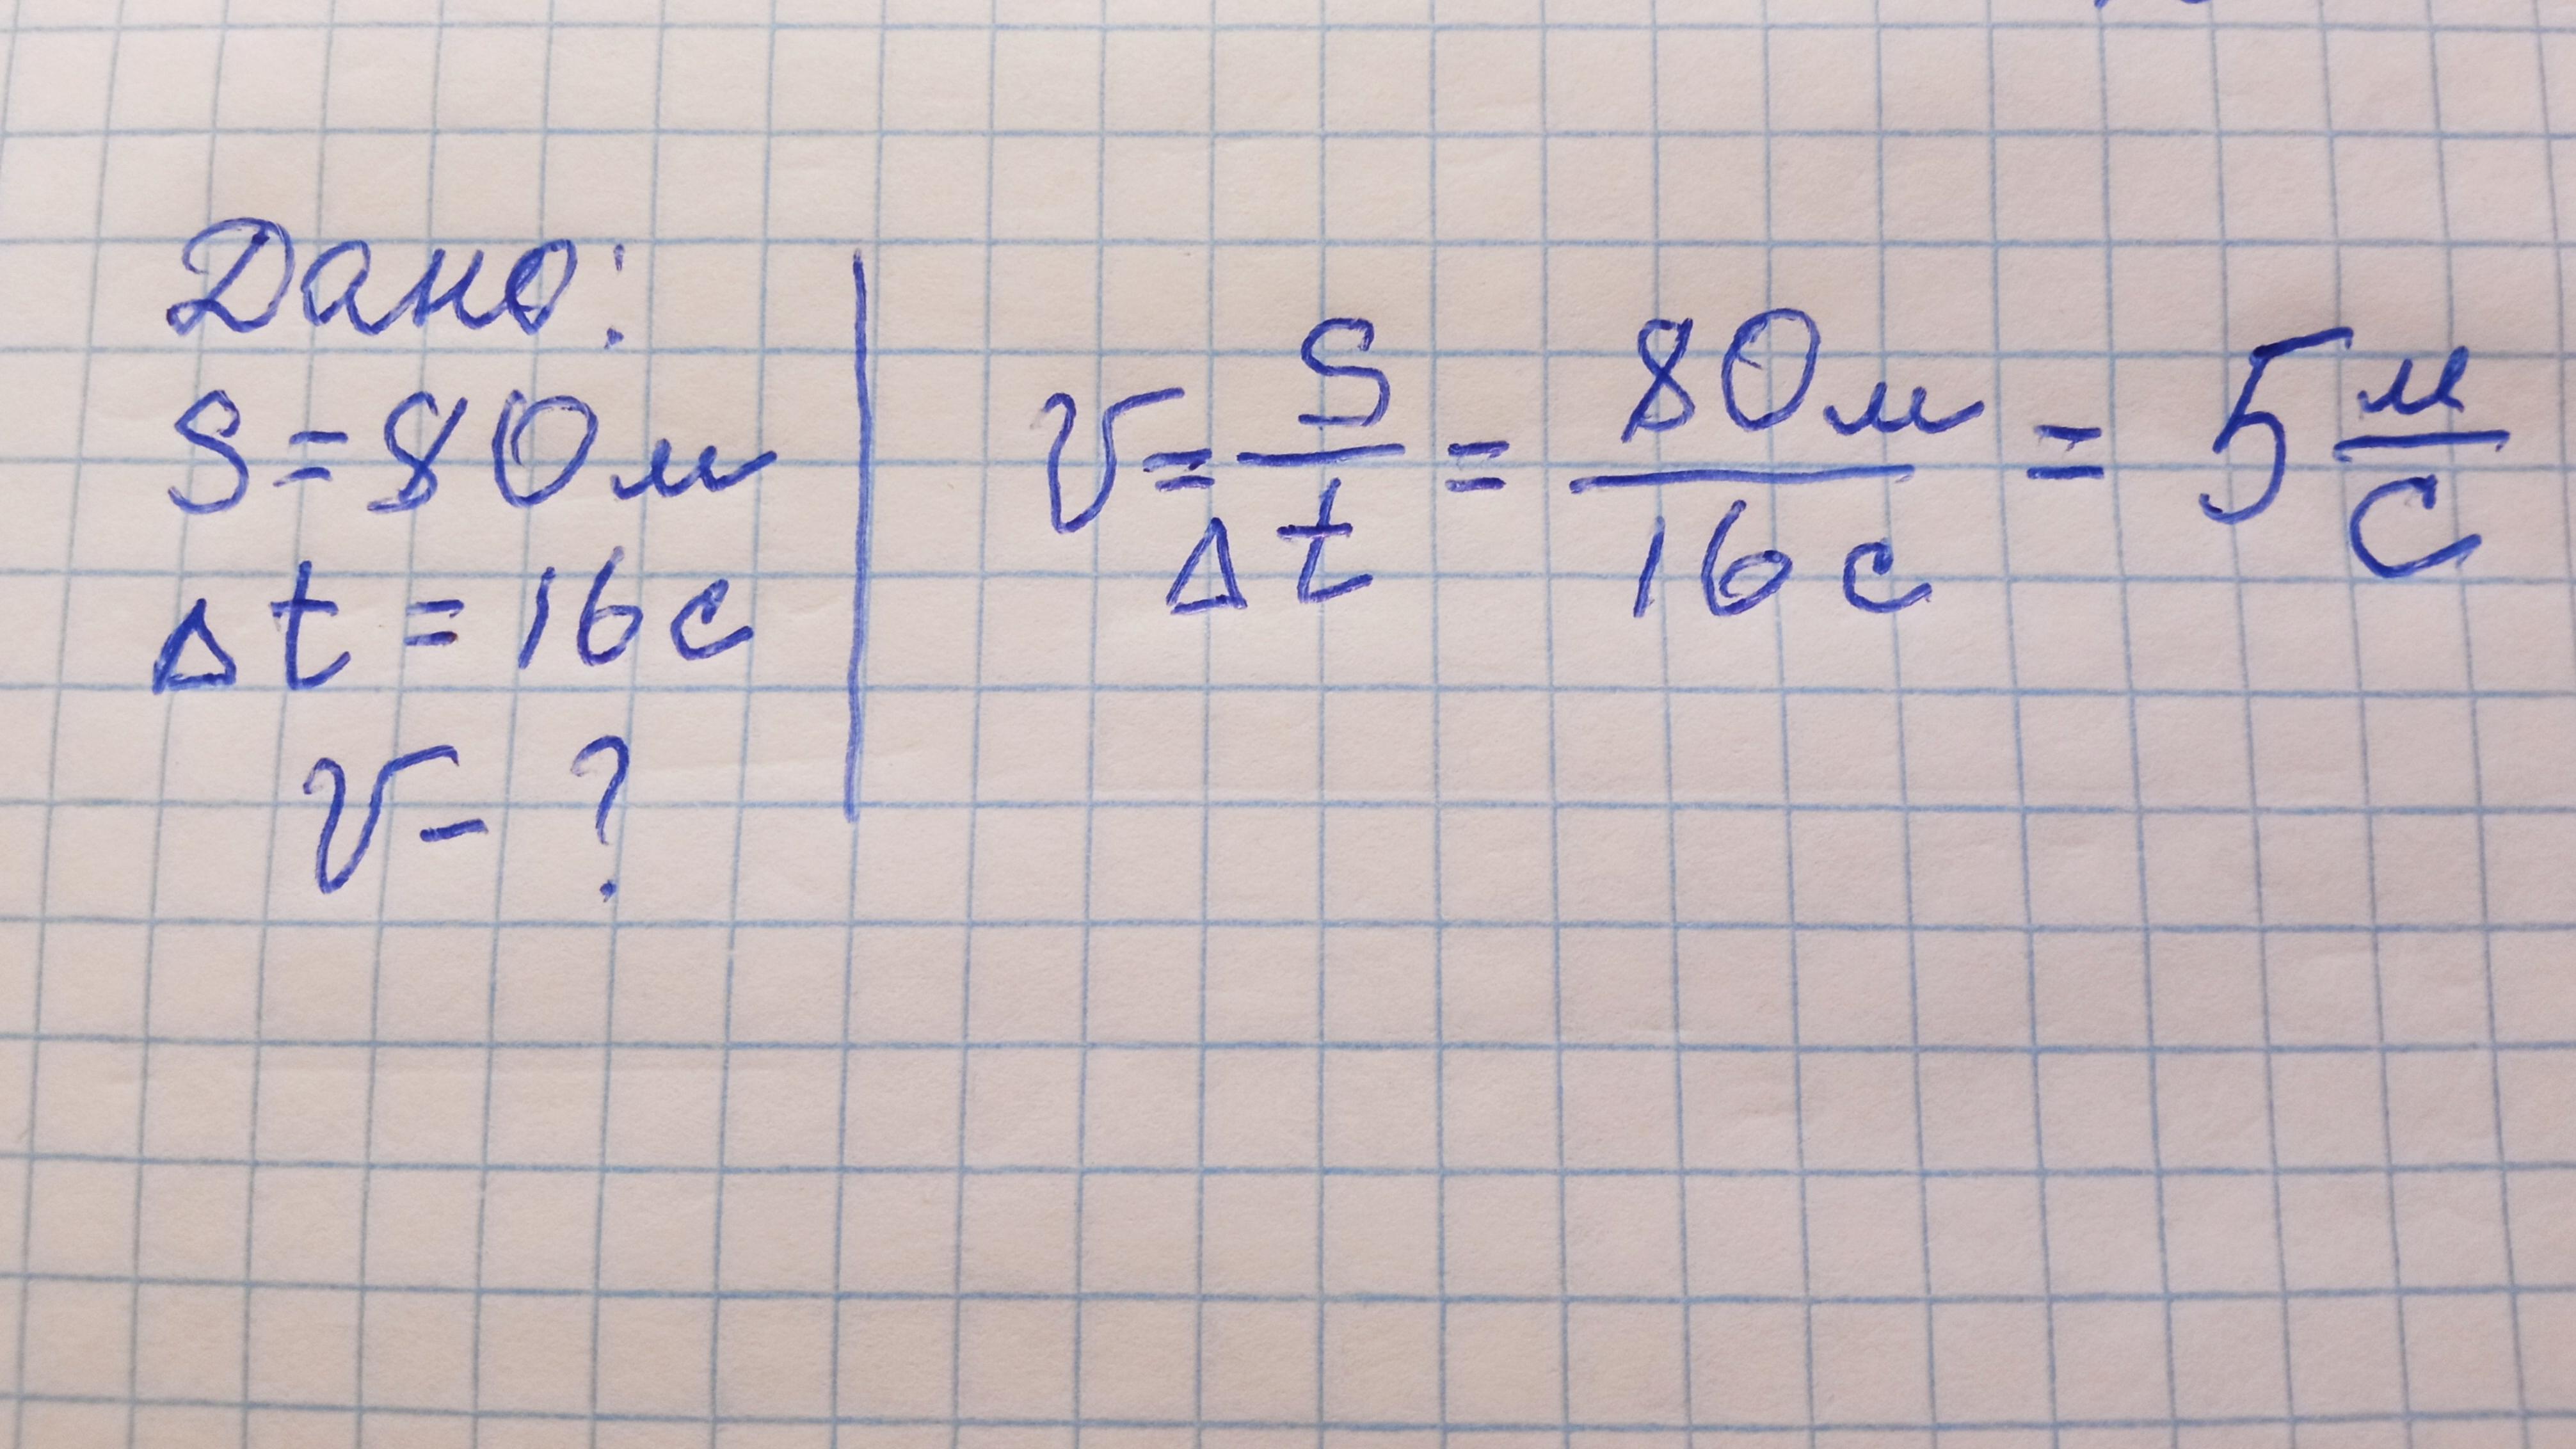 Дано:
S = 80 м
Δt = 16 с
v - ?
v = S/Δt = 80 м/16 с = 5 м/с